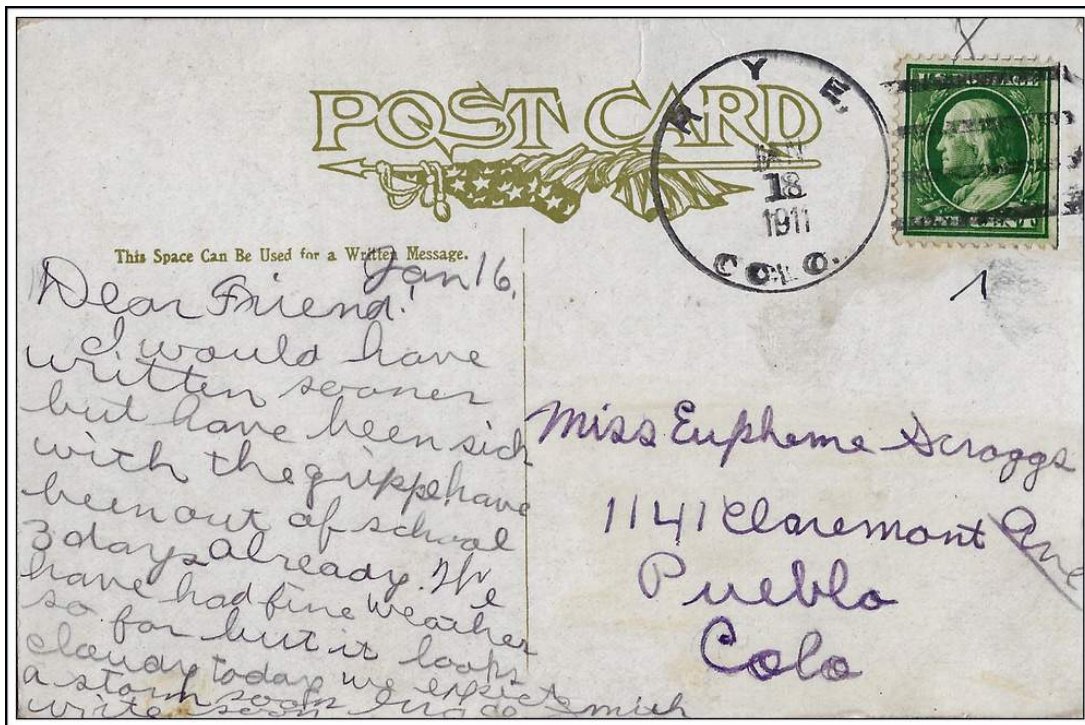 POST CARD
RYE,
JAN
18
1911
COLO.
U.S. POSTAGE
This Space Can Be Used for a Written Message.
Jan 16,
Dear Friend!
I would have
written sooner
but have been sick
with the grippe have
been out of school
3 days already. We
have had fine weather
so far but it looks
cloudy today we expect
a storm soon
write soon Smith
1
Miss Eupheme Scroggs
1141 Claremont Ave
Pueblo
Colo